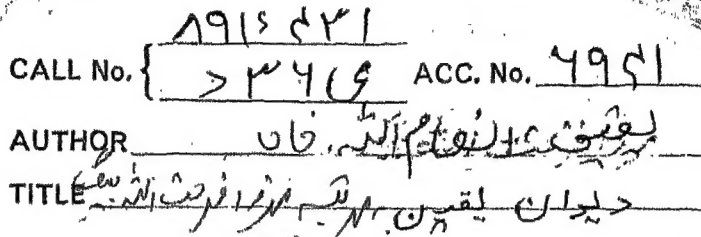 ۸۹۱۵۴۳۱
CALL No. { ی۳۶د ACC. No. ۶۹۴۱
AUTHOR یقین، انعام اللہ خاں
TITLE دیوان یقین مرتبہ مرزا فرحت اللہ بیگ